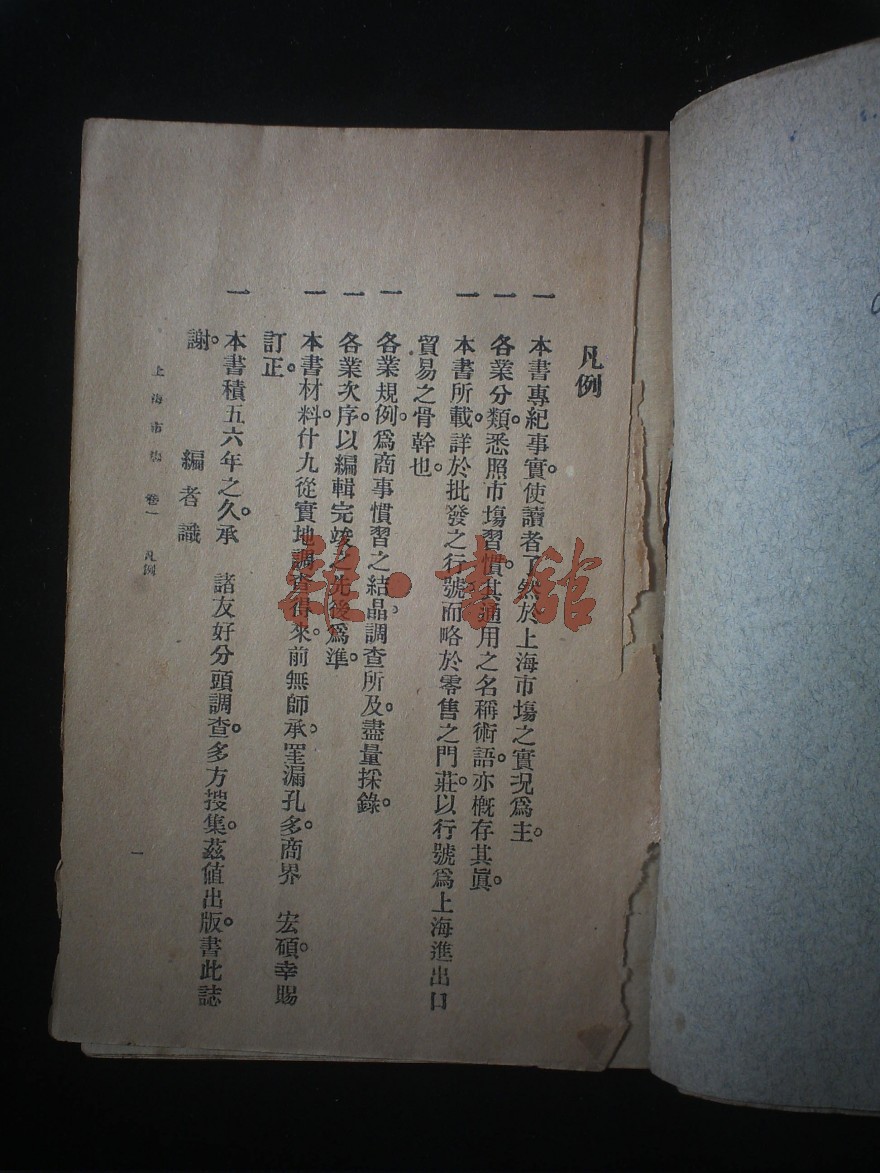 凡例
一 本書專紀事實。使讀者了然於上海市塲之實况爲主。
一 各業分類。悉照市塲習慣。其通用之名稱術語。亦槪存其眞。
一 本書所載。詳於批發之行號而略於零售之門莊。以行號爲上海進出口
貿易之骨幹也。
一 各業規例。爲商事慣習之結晶。調查所及。盡量採錄。
一 各業次序。以編輯完竣之先後爲準。
一 本書材料。什九從實地調查得來。前無師承。罣漏孔多。商界 宏碩。幸賜
訂正。
一 本書積五六年之久。承 諸友好分頭調查。多方搜集。茲値出版。書此誌
謝。
編者識
上海市 卷一 凡例 一
雜·書館